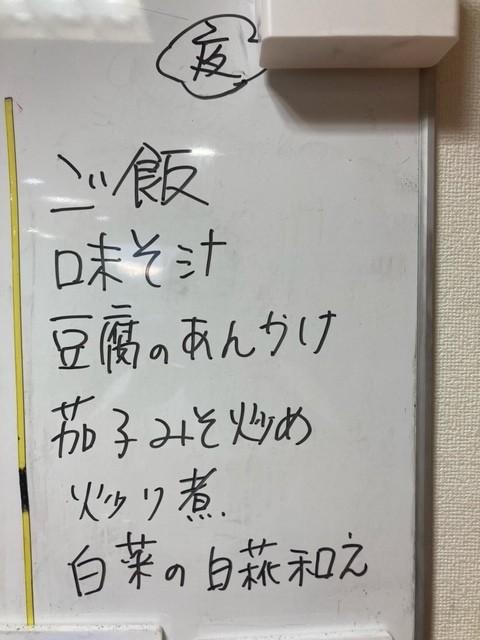 夜
ご飯
味そ汁
豆腐のあんかけ
茄子みそ炒め
炒り煮
白菜の白和え